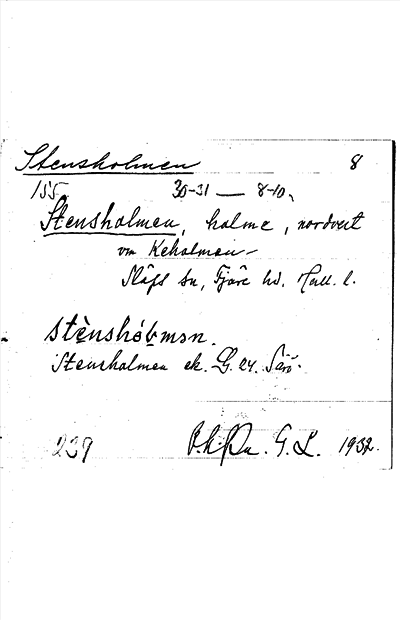 Stensholmen 8
155. 30-31 — 8-10.
Stensholmen, holme, nordväst
om Keholmen
Släps sn, Fjäre hd. Hall. l.
stènshòḷmən.
Stensholmen ek. G. 24. Särö.
239 G. L. 1932.